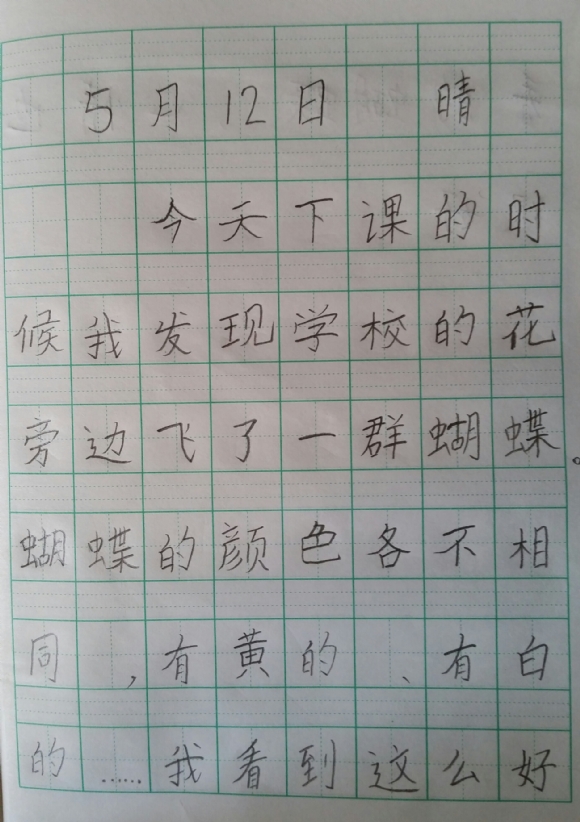 5月12日 晴
今天下课的时
候我发现学校的花
旁边飞了一群蝴蝶。
蝴蝶的颜色各不相
同,有黄的、有白
的……我看到这么好